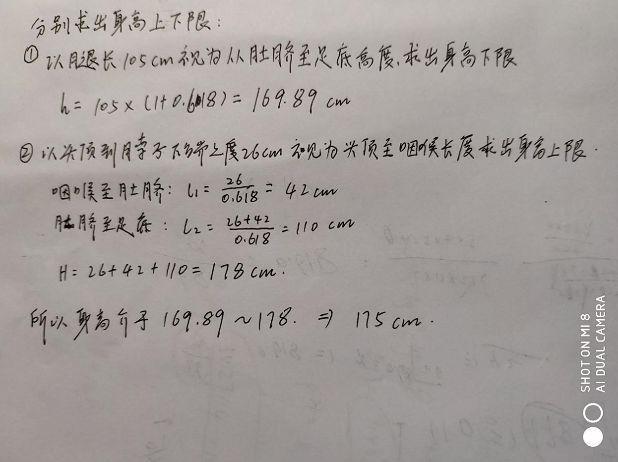 分别求出身高上下限:
① 以腿长105cm视为从肚脐至足底高度,求出身高下限
h = 105 × (1+0.618) = 169.89 cm
② 以头顶到脖子下端之度26cm视为头顶至咽喉长度求出身高上限.
咽喉至肚脐: l₁ = 26/0.618 = 42cm
肚脐至足底: l₂ = 26+42/0.618 = 110 cm
H = 26+42+110 = 178 cm.
所以身高介于 169.89 ~ 178. ⇒ 175cm.
SHOT ON MI 8
AI DUAL CAMERA